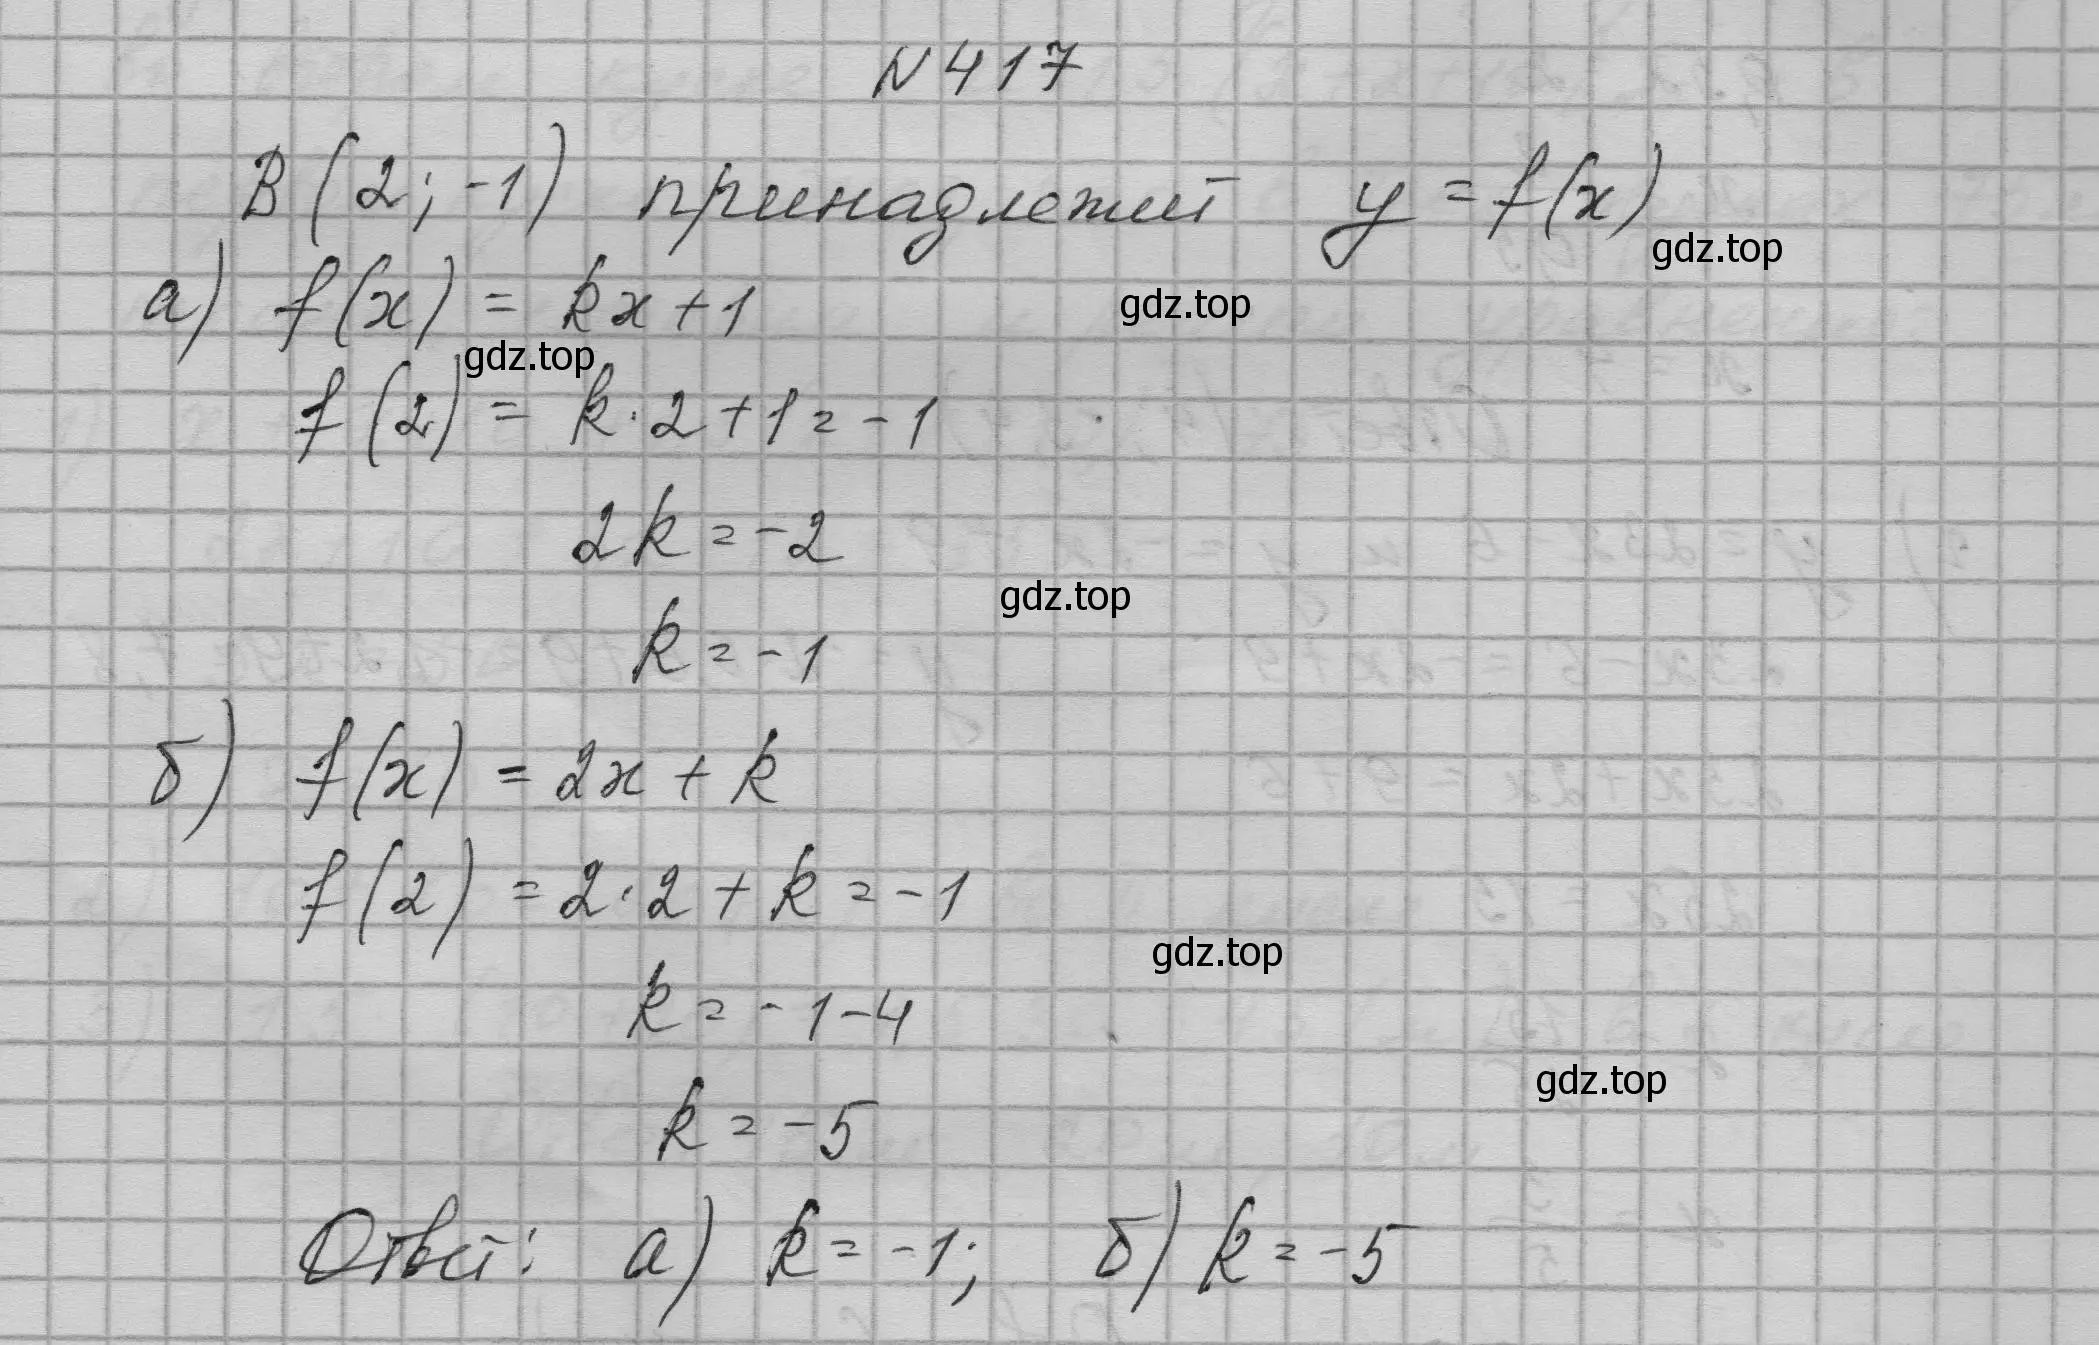 N 417
B(2; -1) принадлежит y = f(x)
gdz.top
а) f(x) = kx + 1
gdz.top
gdz.top
f(2) = k·2 + 1 = -1
2k = -2
gdz.top
k = -1
б) f(x) = 2x + k
f(2) = 2·2 + k = -1
gdz.top
k = -1 - 4
gdz.top
k = -5
Ответ: а) k = -1; б) k = -5